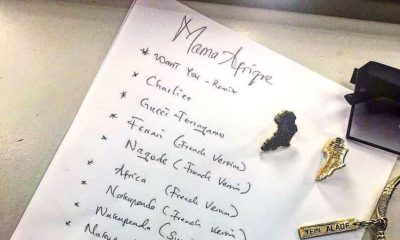 Mama Afrique
* Want You - Remix
* Charliee
* Gucci - Ferragamo
* Ferrari (French Version)
* Nagode (French Version)
* Africa (French Version)
* Nakupenda (French Version)
* Nakupenda
YEMI ALADE